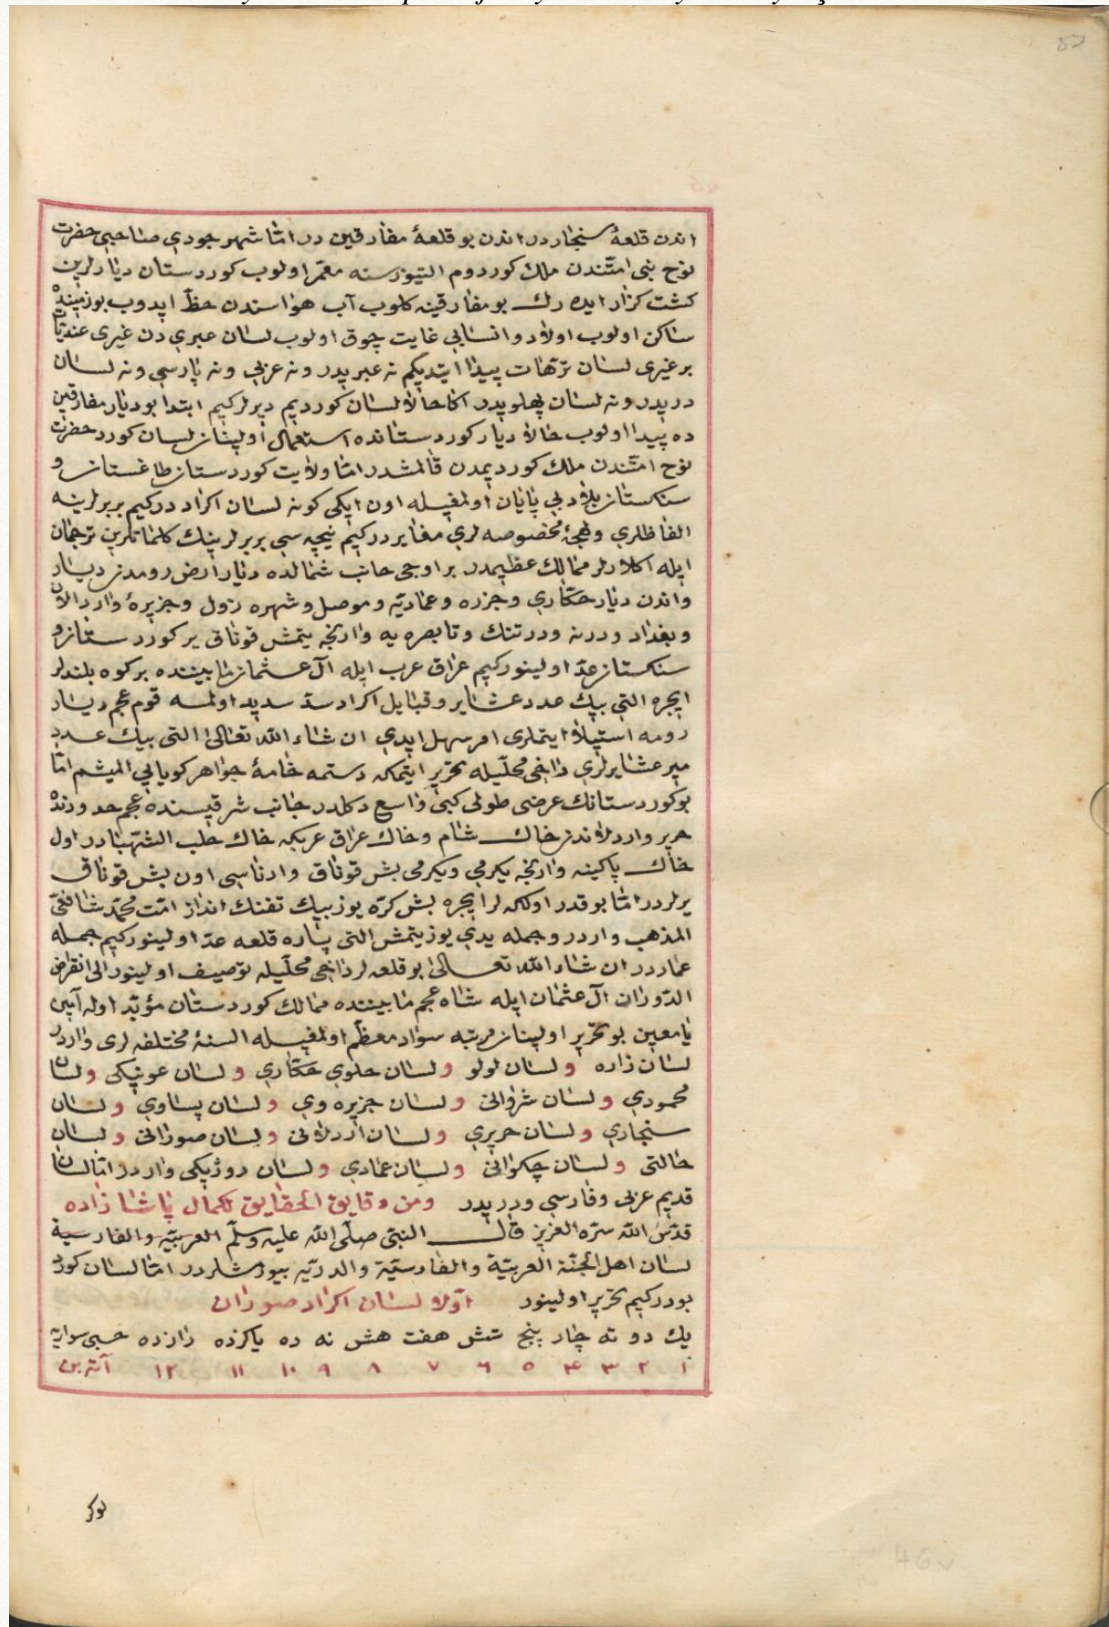 اندن قلعهٔ سنجاردر اندن بو قلعهٔ مفارقین در امّا شهر جودي صاحبي حضرت
نوح نبي امّتندن ملك كوردوم التیوز سنه معمّر اولوب كوردستان دیارلرین
كشت كزار ایده رك بو مفارقینه كلوب آب هواسندن حظّ ایدوب بو زمینده
ساكن اولوب اولاد و انسابي غایت چوق اولوب لسان عبري دن غیري عندیّات
بر غیري لسان ترّهات پیدا ایتدیكم نه عبریدر و نه عربي و نه پارسي و نه لسان
دریدر و نه لسان پهلویدر اكا حالا لسان كوردیم دیرلر كیم ابتدا بو دیار مفارقین
ده پیدا اولوب حالا دیار كوردستانده استعمال اولینان لسان كورد حضرت
نوح امّتندن ملك كوردیمدن قالمشدر امّا ولایت كوردستان طاغستان و
سنكستان بلاد بي پایان اولمغیله اون ایكي كونه لسان اكراد دركیم بربرلرینه
الفاظلري و لهجهٔ مخصوصه لري مغایر دركیم نیچه سي بربرلرینك كلماتلرین ترجمان
ایله اكلارلر ممالك عظیمدر بر اوجي جانب شمالده دیار ارض رومدن دیار
و اندن دیار حكّاري و جزره و عمادیّه و موصل و شهره زول و جزیرهٔ و اردلان
و بغداد و درنه و درتنك و تا بصره یه وارنجه یتمش قوناق یر كوردستان و
سنكستان عدّ اولینور كیم عراق عرب ایله آل عثمان مابیننده بر كوه بلندلر
ایچره التي بیك عدد عشایر و قبایل اكراد سدّ سدید اولمسه قوم عجم دیار
رومه استیلا ایتملري امر سهل ایدي ان شاء الله تعالی التي بیك عدد
میر عشایرلري داخي محلّیله تحریر ایتمكه دستمه خامهٔ جواهر كویایي المیشم امّا
بو كوردستانك عرضي طولي كبي واسع دكلدر جانب شرقیسنده عجم حدودنده
حریر و اردلاندن خاك شام و خاك عراق عربكه خاك حلب الشهبادر اول
خاك پاكینه وارنجه یكرمي و یكرمي بش قوناق و ادناسي اون بش قوناق
یرلردر امّا بو قدر اولكه لر ایچره بش كرّه یوز بیك تفنك انداز امّت محمّد شافعيّ
المذهب واردر و جمله یدي یوز یتمش التي پاره قلعه عدّ اولینور كیم جمله
عماردر ان شاء الله تعالی بو قلعه لر داخي محلّیله توصیف اولینور الی انقراض
الدّوران آل عثمان ایله شاه عجم مابیننده ممالك كوردستان مؤبّد اوله آمین
یا معین بو تحریر اولینان مرتبه سواد معظّم اولمغیله السنهٔ مختلفه لري واردر
لسان زازه و لسان لولو و لسان حلوي حكّاري و لسان عونیكي و لسان
محمودي و لسان شرواني و لسان جزیره وي و لسان پساوي و لسان
سنجاري و لسان حریري و لسان اردلاني و لسان صوراني و لسان
خالتي و لسان چكواني و لسان عمادي و لسان روزیكي واردر امّا لسان
قدیم عربي و فارسي و دریدر و من دقایق الحقایق لكمال پاشا زاده
قدّس الله سرّه العزیز قال النبيّ صلّی الله علیه و سلّم العربیّه و الفارسیة
لسان اهل الجنّة العربیّة و الفارسیّة و الدریّه بیورمشلردر امّا لسان كورد
بودركیم تحریر اولینور اوّلا لسان اكراد صوران
یك دو ته چار پنج شش هفت هش نه ده یاكزده دازده
۱ ۲ ۳ ۴ ۵ ۶ ۷ ۸ ۹ ۱۰ ۱۱ ۱۲